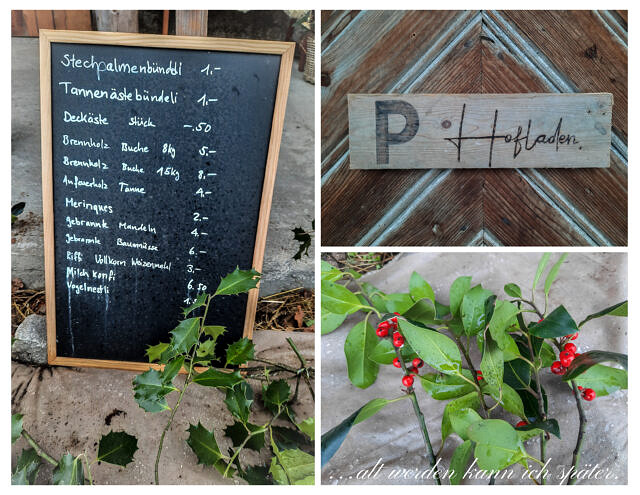 Stechpalmenbündeli 1.-
Tannenästebündeli 1.-
Deckäste Stück -.50
Brennholz Buche 8kg 5.-
Brennholz Buche 15kg 8.-
Anfeuerholz Tanne 4.-
Meringues 2.-
gebrannte Mandeln 4.-
gebrannte Baumnüsse 6.-
Riffi Vollkorn Weizenmehl 3.-
Milch Konfi 6.50
Vogelnestli
P Hofladen.
...alt werden kann ich später.